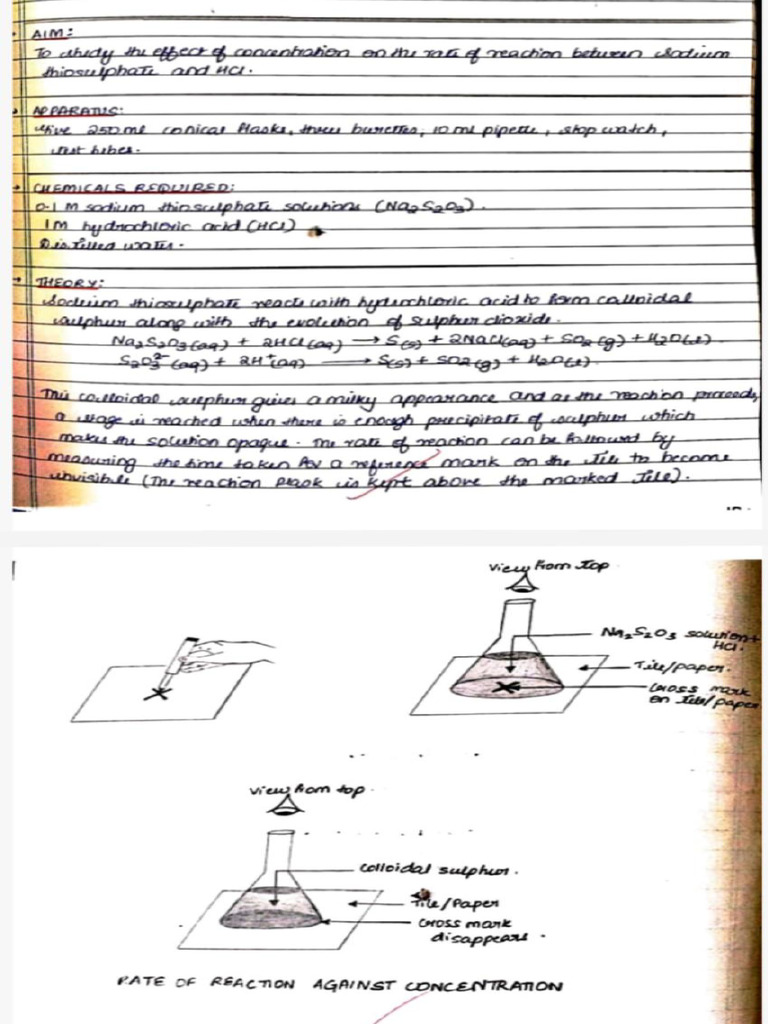 AIM:
To study the effect of concentration on the rate of reaction between sodium
thiosulphate and HCl.
APPARATUS:
Five 250 ml conical flasks, three burettes, 10 ml pipette, stop watch,
test tubes.
CHEMICALS REQUIRED:
0.1 M sodium thiosulphate solutions (Na2S2O3).
1M hydrochloric acid (HCl)
Distilled water.
THEORY:
Sodium thiosulphate reacts with hydrochloric acid to form colloidal
sulphur along with the evolution of sulphur dioxide.
Na2S2O3(aq) + 2HCl(aq) → S(s) + 2NaCl(aq) + SO2(g) + H2O(l).
S2O3²⁻(aq) + 2H⁺(aq) → S(s) + SO2(g) + H2O(l).
This colloidal sulphur gives a milky appearance and as the reaction proceeds,
a stage is reached when there is enough precipitate of sulphur which
makes the solution opaque. The rate of reaction can be followed by
measuring the time taken for a reference mark on the tile to become
invisible (The reaction flask is kept above the marked tile).
view from top
Na2S2O3 solution +
HCl.
Tile/paper.
cross mark
on tile/paper
view from top.
colloidal sulphur.
Tile/Paper
cross mark
disappears.
RATE OF REACTION AGAINST CONCENTRATION